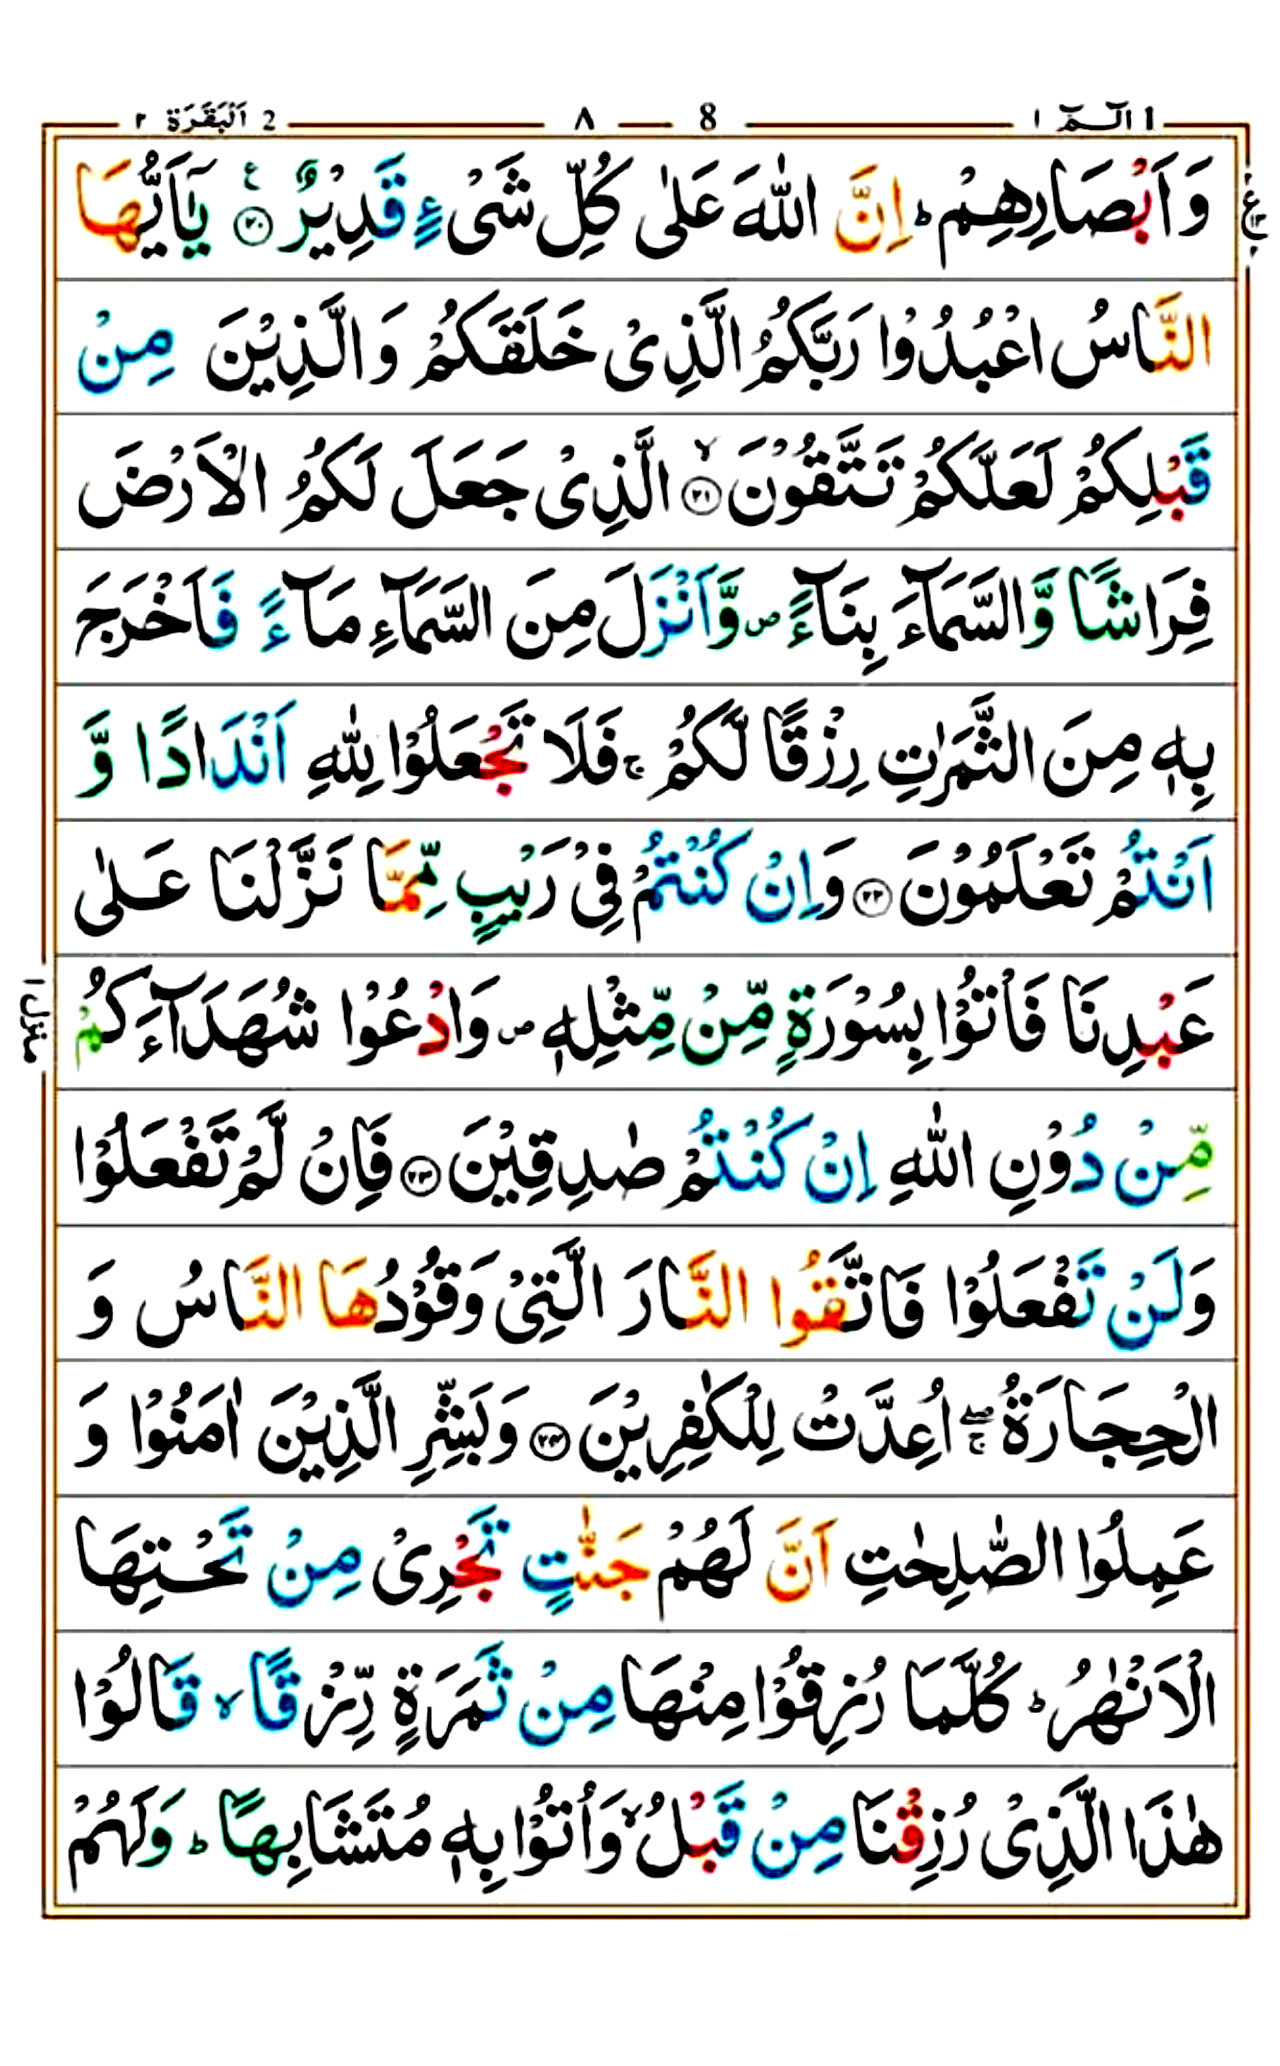 1 الٓـمّٓ ١ — 8 — ٨ — 2 اَلْبَقَرَة ٢
وَاَبْصَارِهِمْ ؕ اِنَّ اللّٰهَ عَلٰى كُلِّ شَىْءٍ قَدِيْرٌ ۟۠ ﴿۲۰﴾ ع يٰۤاَيُّهَا
النَّاسُ اعْبُدُوْا رَبَّكُمُ الَّذِىْ خَلَقَكُمْ وَالَّذِيْنَ مِنْ
قَبْلِكُمْ لَعَلَّكُمْ تَتَّقُوْنَ ۙ ﴿۲۱﴾ الَّذِىْ جَعَلَ لَكُمُ الْاَرْضَ
فِرَاشًا وَّالسَّمَآءَ بِنَآءً ۪ وَّاَنْزَلَ مِنَ السَّمَآءِ مَآءً فَاَخْرَجَ
بِهٖ مِنَ الثَّمَرٰتِ رِزْقًا لَّكُمْ ۚ فَلَا تَجْعَلُوْا لِلّٰهِ اَنْدَادًا وَّ
اَنْتُمْ تَعْلَمُوْنَ ﴿۲۲﴾ وَاِنْ كُنْتُمْ فِىْ رَيْبٍ مِّمَّا نَزَّلْنَا عَلٰى
عَبْدِنَا فَاْتُوْا بِسُوْرَةٍ مِّنْ مِّثْلِهٖ ۪ وَادْعُوْا شُهَدَآءَكُمْ
مِّنْ دُوْنِ اللّٰهِ اِنْ كُنْتُمْ صٰدِقِيْنَ ﴿۲۳﴾ فَاِنْ لَّمْ تَفْعَلُوْا
وَلَنْ تَفْعَلُوْا فَاتَّقُوا النَّارَ الَّتِىْ وَقُوْدُهَا النَّاسُ وَ
الْحِجَارَةُ ۖۚ اُعِدَّتْ لِلْكٰفِرِيْنَ ﴿۲۴﴾ وَبَشِّرِ الَّذِيْنَ اٰمَنُوْا وَ
عَمِلُوا الصّٰلِحٰتِ اَنَّ لَهُمْ جَنّٰتٍ تَجْرِىْ مِنْ تَحْتِهَا
الْاَنْهٰرُ ؕ كُلَّمَا رُزِقُوْا مِنْهَا مِنْ ثَمَرَةٍ رِّزْقًا ۙ قَالُوْا
هٰذَا الَّذِىْ رُزِقْنَا مِنْ قَبْلُ ۙ وَاُتُوْا بِهٖ مُتَشَابِهًا ؕ وَلَهُمْ
منزل ١